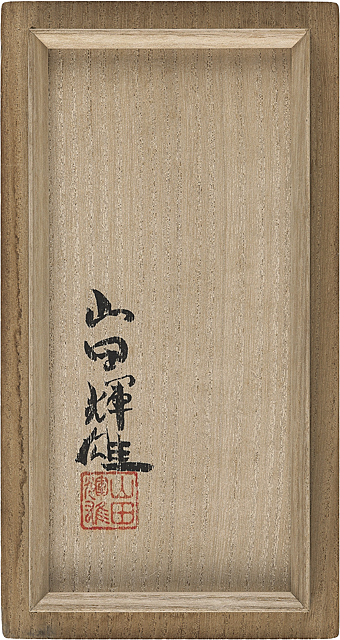 山田輝雄
山田
輝雄